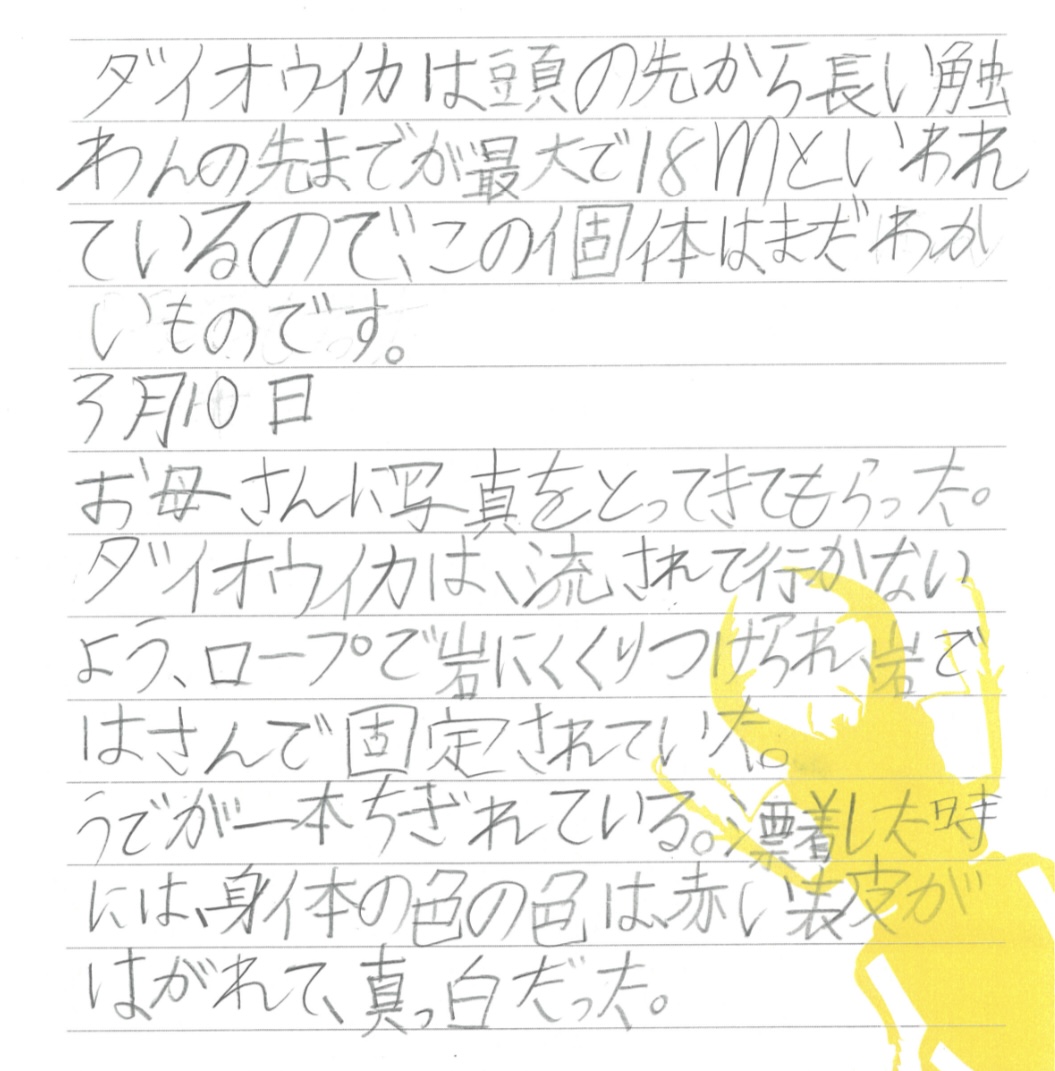 ダイオウイカは頭の先から長い触
わんの先までが最大で18mといわれ
ているので、この個体はまだわか
いものです。
3月10日
お母さんに写真をとってきてもらった。
ダイオウイカは、流されて行かない
よう、ロープで岩にくくりつけられ、岩で
はさんで固定されていた。
うでが一本ちぎれている。漂着した時
には、身体の色の色は、赤い表皮が
はがれて、真っ白だった。